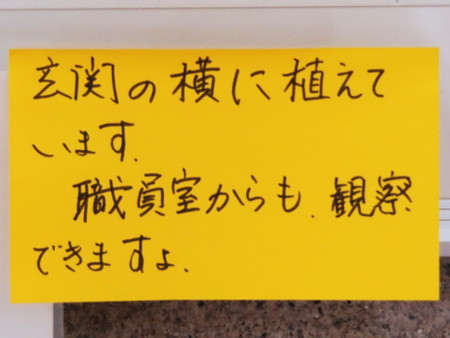 玄関の横に植えて
います.
職員室からも、観察
できますよ、